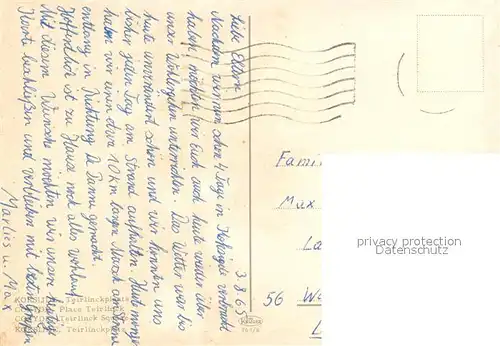 3.8.65
Liebe Eltern
Nachdem wir nun schon 4 Tage in Koksijde verbracht
habe, möchten wir Euch auch heute wieder über
unser Wohlergehen unterrichten. Das Wetter war bis
heute unverändert schön und wir konnten uns
bisher jeden Tag am Strand aufhalten. Heut morgen
haben wir einen etwa 10 km langen Marsch am Strand
entlang in Richtung De Panne gemacht.
Hoffentlich ist zu Hause noch alles wohlauf.
Mit diesem Wunsche möchten wir unsere heutige
Karte beschließen und verbleiben mit besten Grüßen
Marlies u. Max
Teirlinckplaats
Place Teirlinck
Teirlinck Square
Teirlinckplatz
Fami
Max
La
56 W
L
property of
akpool.de